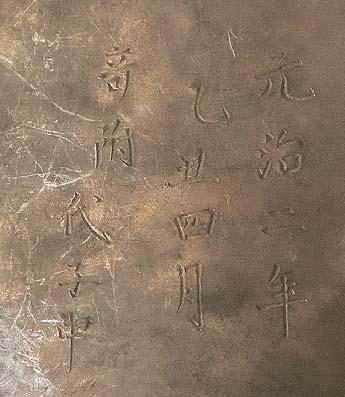 元治二年
乙丑四月
寄附
氏子中